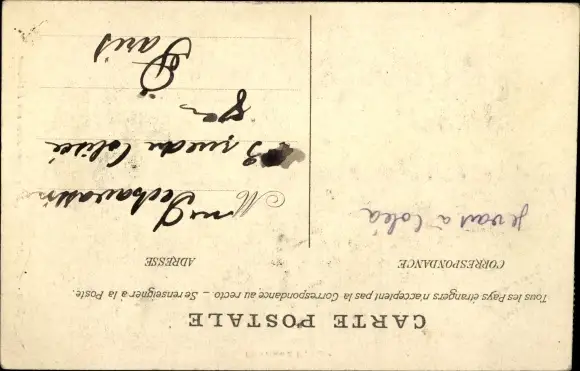 CARTE POSTALE
Tous les Pays étrangers n'acceptent pas la Correspondance au recto – Se renseigner à la Poste.
CORRESPONDANCE
je vais à Coléa
ADRESSE
M
3 rue du Colisée
8
Paris